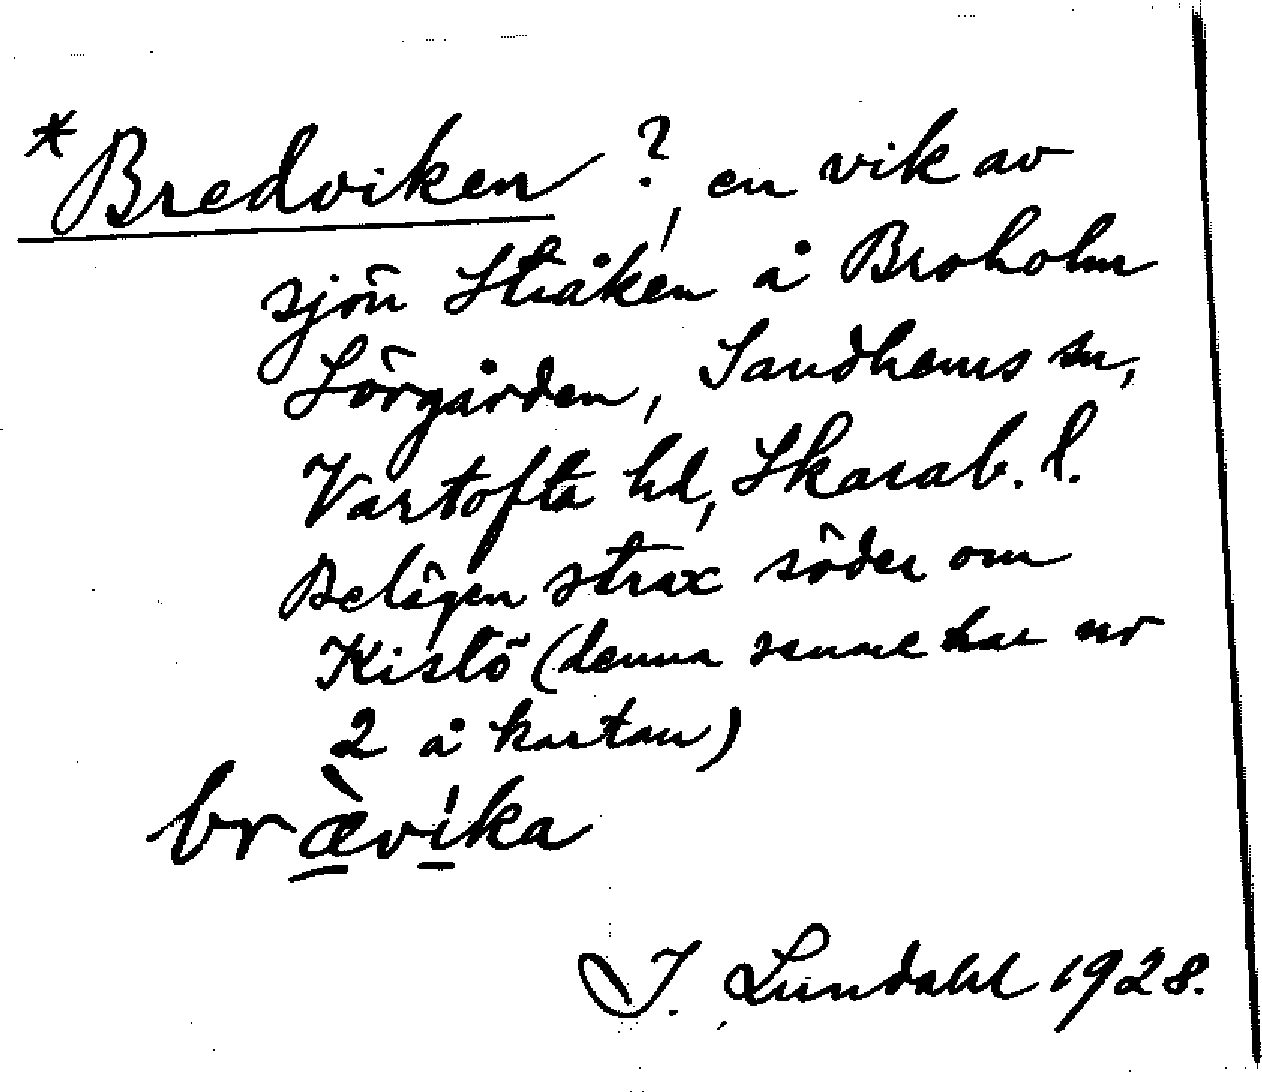 *Bredviken?, en vik av
sjön Stråken å Broholm
Sörgården, Sandhems sn,
Vartofta hd, Skarab. l.
Belägen strax söder om
Kistö (denna senare har nr
2 å kartan)
bræ̀víka
I. Lundahl 1928.